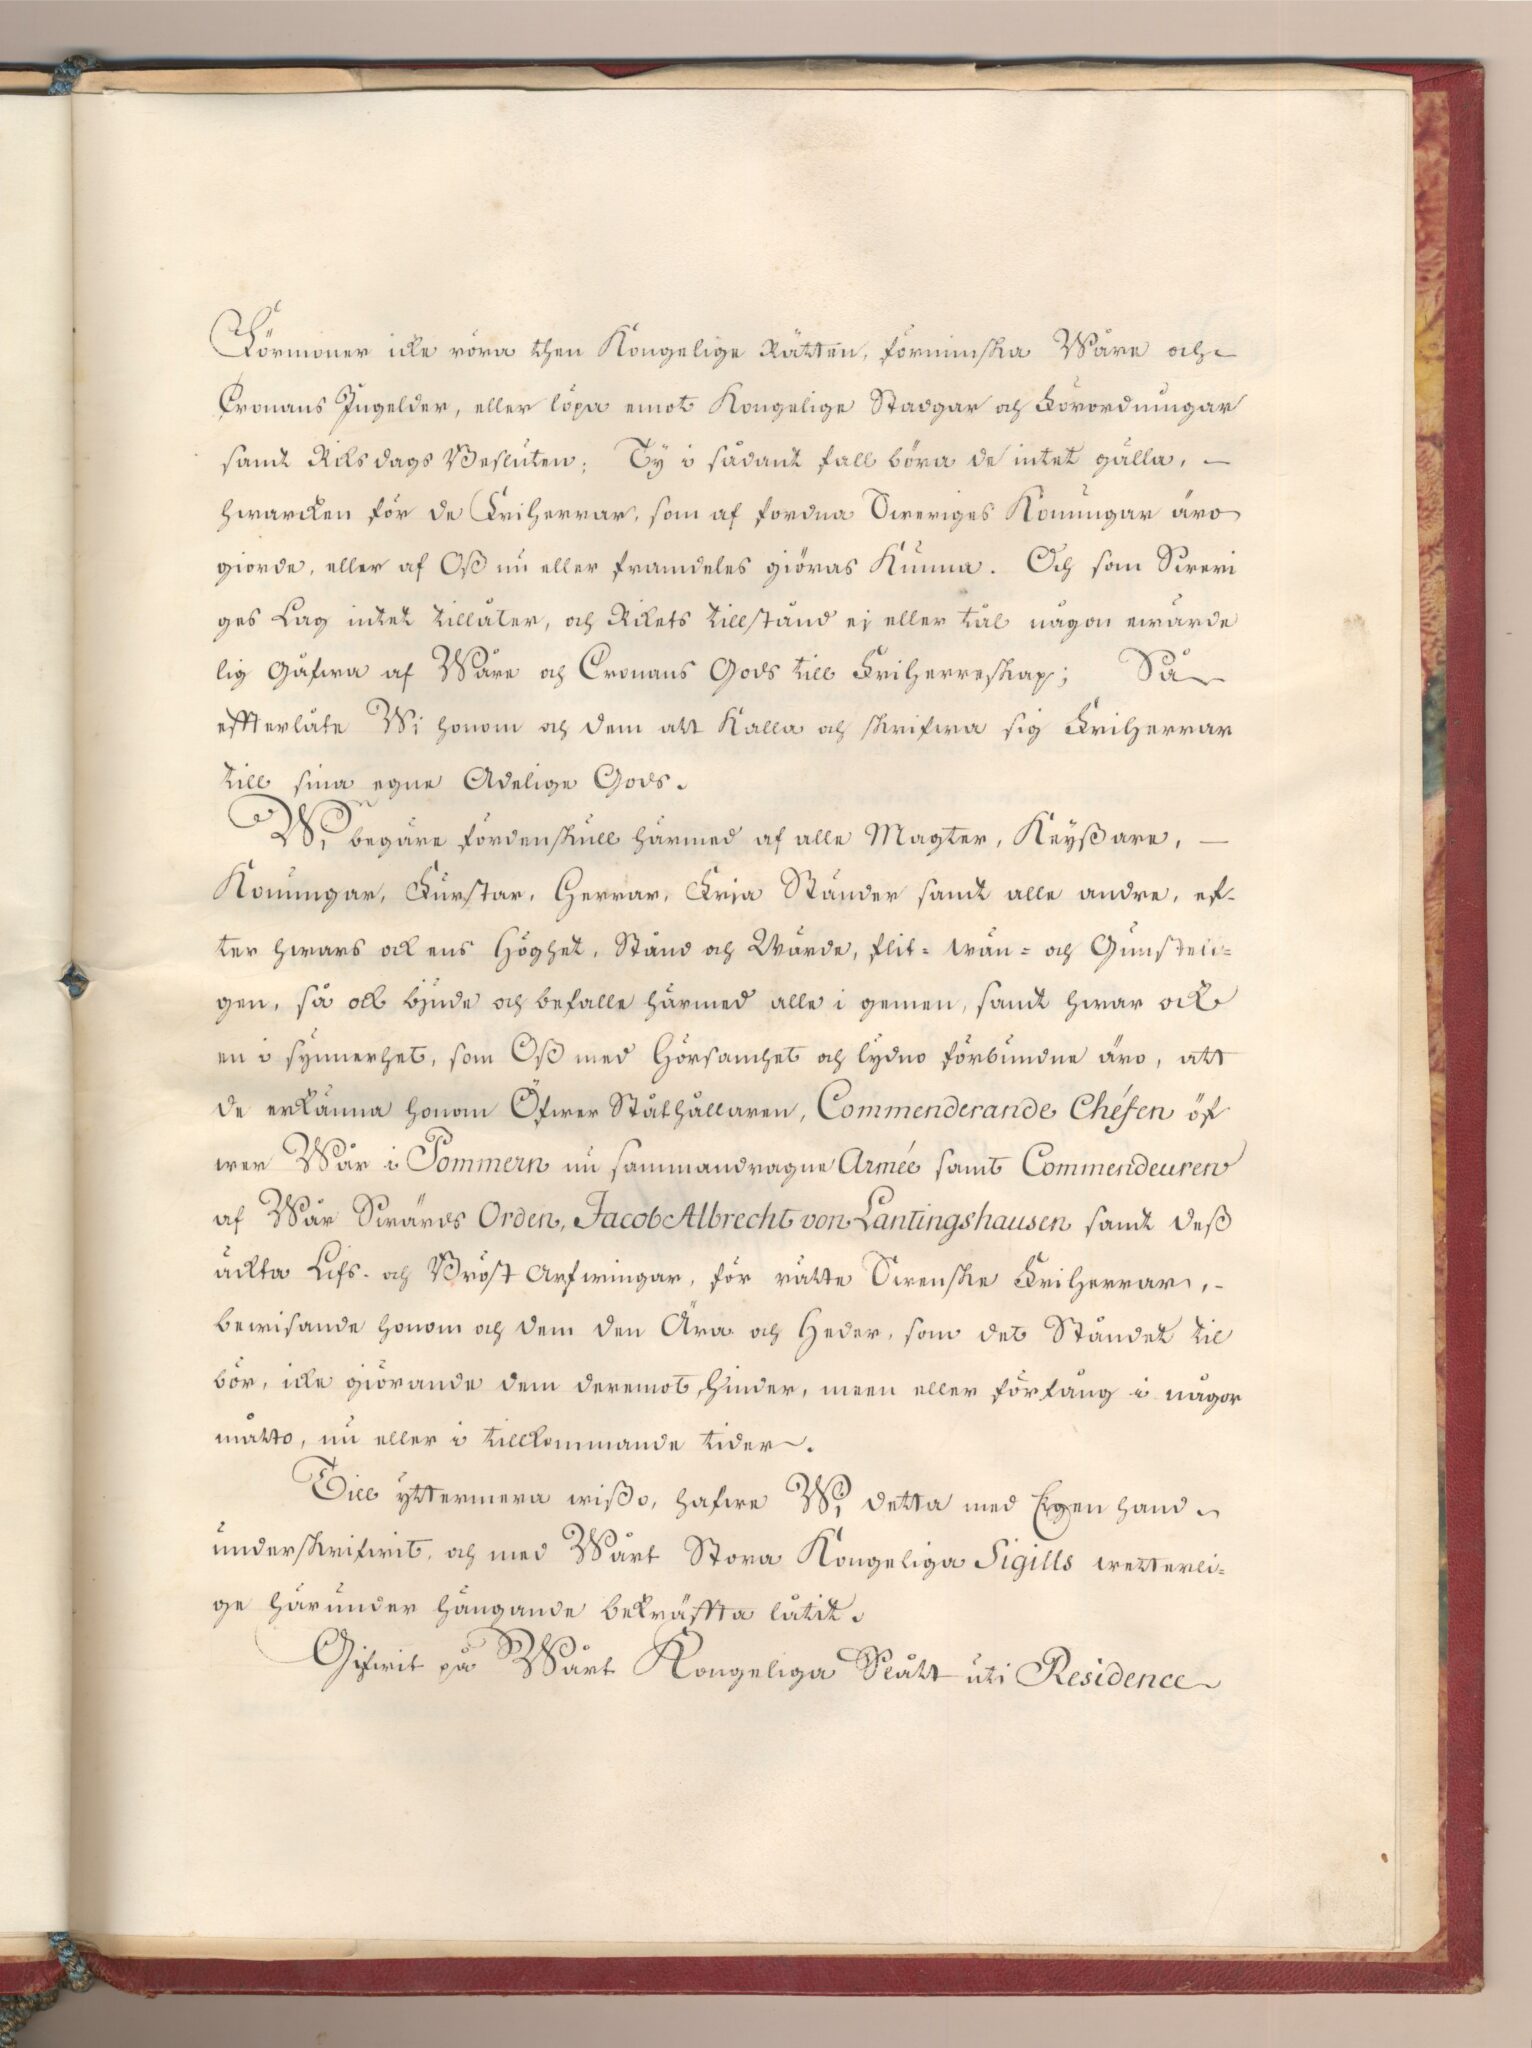 Förmoner icke röra then Kongelige Rätten, förminska Wåre och
Cronans Ingelder, eller löpa emot Kongelige Stadgar och Förordningar
samt Riksdags Besluten; Ty i sådant fall böra de intet gälla,
hwarcken för de Friherrar, som af fordna Sweriges Konungar äro
giorde, eller af Oß nu eller framdeles giöras kunna. Och som Sweri
ges Lag intet tillåter, och Rikets tillstånd ej eller tål någon ewärde
lig Gåfwa af Wåre och Cronans Gods till Friherreskap; Så
effterlåte Wi honom och dem att kalla och skrifwa sig Friherrar
till sina egne Adelige Gods.
Wi begäre fördenskull härmed af alle Magter, Keyßare,
Konungar, Furstar, Herrar, Fria Ständer samt alle andre, ef-
ter hwars ock ens Höghet, Stånd och Wärde, flit- wän- och Gunsteli-
gen, så ock biude och befalle härmed alle i gemen, samt hwar ock
en i synnerhet, som Oß med Hörsamhet och lydno förbundne äro, att
de erkänna honom Öfwer Ståthållaren, Commenderande Chéfen öf
wer Wår i Pommern nu sammandragne Armée samt Commendeuren
af Wår Swärds Orden, Jacob Albrecht von Lantingshausen samt deß
äckta Lifs- och Bröst Arfwingar, för rätte Swenske Friherrar,
bewisande honom och dem den Ära och Heder, som det Ståndet til
bör, icke giörande dem deremot hinder, meen eller förfång i någor
måtto, nu eller i tillkommande tider.
Till yttermera wißo, hafwe Wi detta med Egen hand
underskrifwit, och med Wårt Stora Kongeliga Sigills wetterli-
ge härunder hängande bekräffta låtit.
Gifwit på Wårt Kongeliga Slått uti Residence